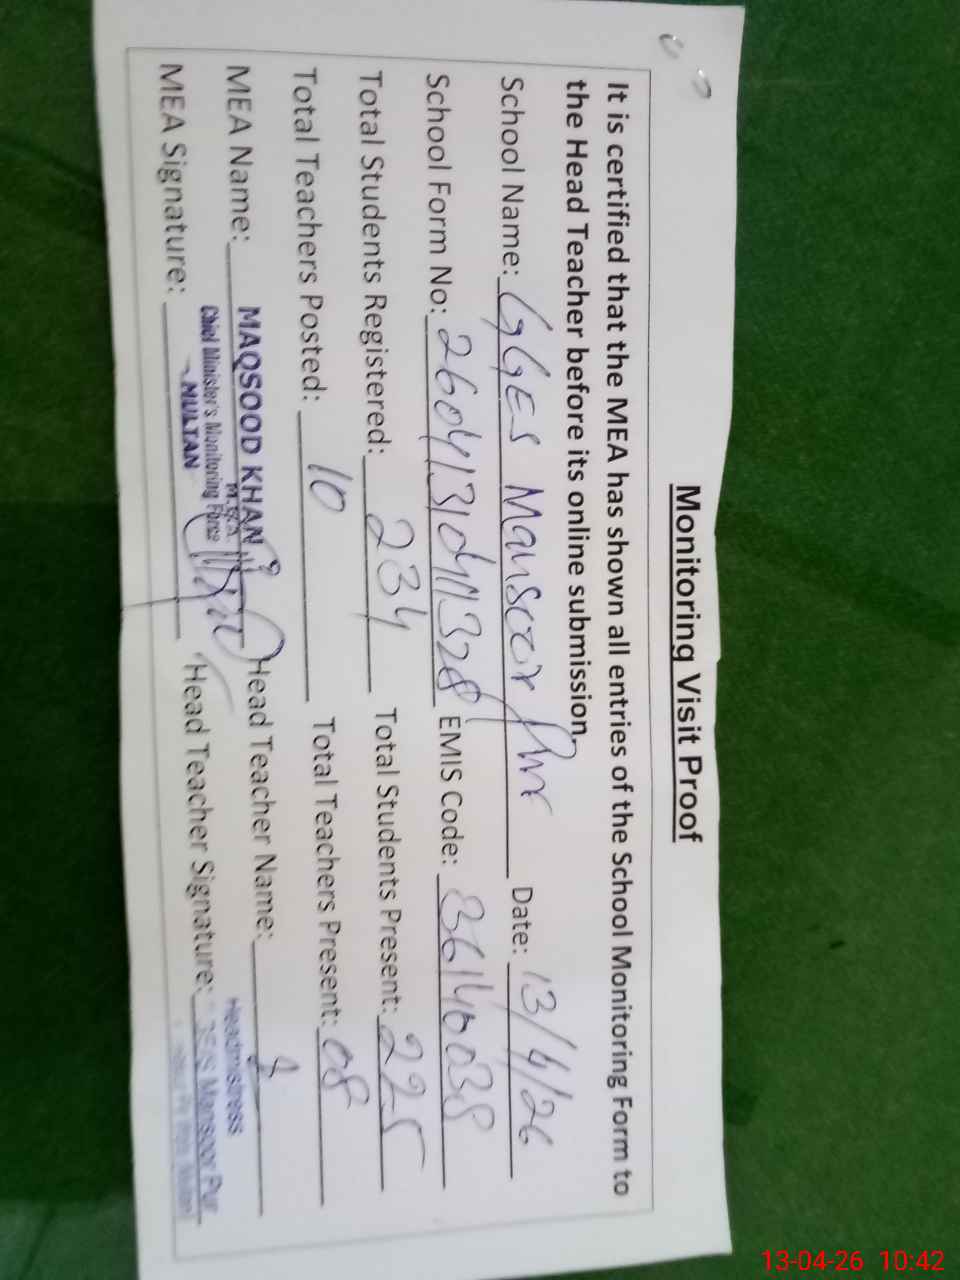 Monitoring Visit Proof
It is certified that the MEA has shown all entries of the School Monitoring Form to
the Head Teacher before its online submission.
School Name: GGES Mansoor Pur Date: 13/4/26
School Form No: EMIS Code: 36140038
Total Students Registered: 234 Total Students Present: 225
Total Teachers Posted: 10 Total Teachers Present: 08
MEA Name: MAQSOOD KHAN Head Teacher Name:
M.E.A.
Chief Minister's Monitoring Force
MULTAN
MEA Signature: Head Teacher Signature:
Headmistress
Mansoor Pur
13-04-26 10:42